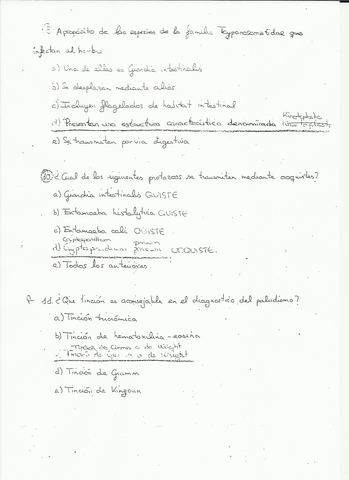 A propósito de las especies de la familia Trypanosomatidae que
infectan al hombre
a) Una de ellas es Giardia intestinalis
b) Se desplazan mediante cilios
c) Incluyen flagelados de habitat intestinal
Kinetoplasto
d) Presentan una estructura característica denominada
e) Se transmiten por via digestiva
10. ¿Cual de los siguientes protozoos se transmiten mediante ooquistes?
a) Giardia intestinalis QUISTE
b) Entamoeba histolytica QUISTE
c) Entamoeba coli QUISTE
Cryptosporidium parvum
d) Cryptosporidium parvum OOQUISTE.
e) Todos los anteriores.
11. ¿Que tinción es aconsejable en el diagnostico del paludismo?
a) Tinción tricrómica
b) Tinción de hematoxilina-eosina
Tinción de Giemsa o de Wright
c) Tinción de Giemsa o de Wright
d) Tinción de Gramm
e) Tinción de Kinyoun